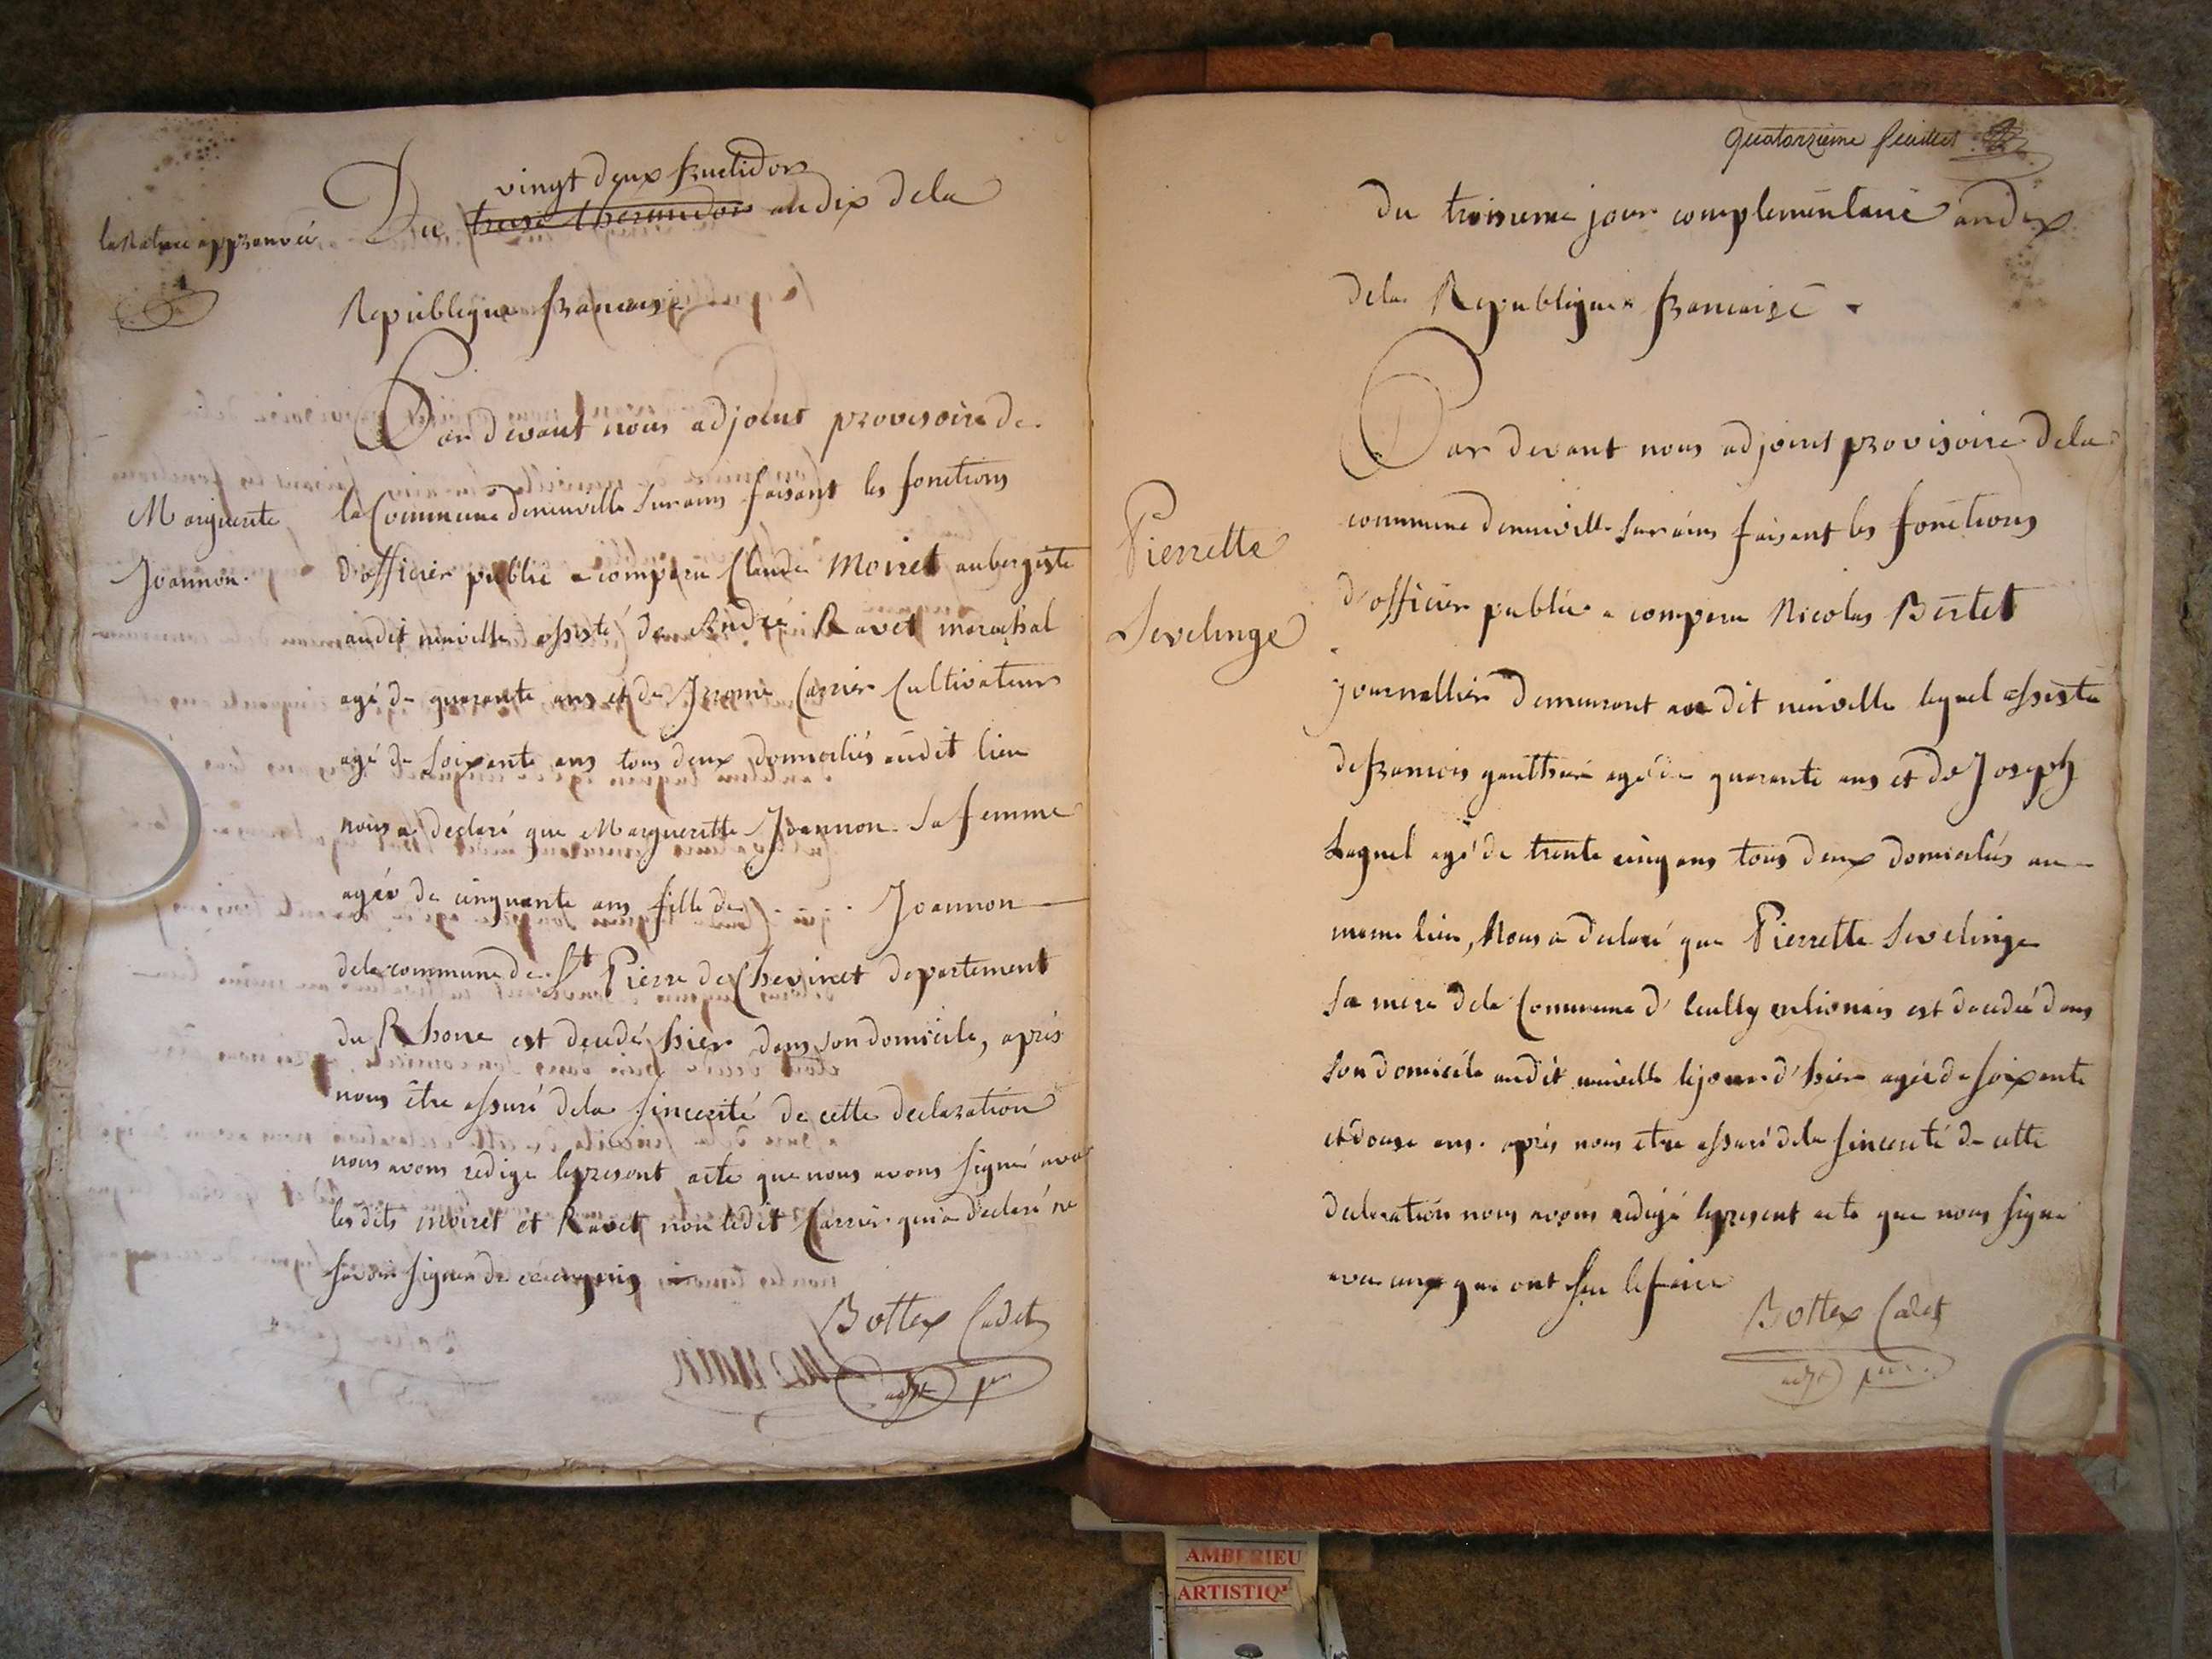 vingt deux fructidor
Du treise thermidor an dix dela
la rature approuvée
Republique francaise
Par devant nous adjoint provisoire de
la Commune deneuville sur ains faisant les fonctions
Marguerite
Joannon.
d'officier public a comparu Claude Moiret aubergiste
audit neuville assisté de André Ravet marechal
agé de quarante ans et de Jerome Carrier Cultivateur
agé de soixante ans tous deux domiciliés audit lieu
nous a declaré que Margueritte Joannon sa femme
agée de cinquante ans fille de . . . Joannon
dela commune de St Pierre de Chevinet departement
du Rhone est decedé hier dans son domicile, après
nous être assuré dela sincerité de cette declaration
nous avons redige lepresent acte que nous avons signé avec
les dits moiret et Ravet non ledit Carrier qui a declaré ne
savoir signer de ce enquis
Bottex Cadet
adjt pr
Quatorzieme feuillet
du troisieme jour complementaire an dix
dela Republique francaise .
Par devant nous adjoint provisoire dela
commune deneuville sur ains faisant les fonctions
Pierrette
Sevelinge
d'officier public a comparu Nicolas Bertet
journallier demeurant au dit neuville lequel assisté
de francois gauthier agé de quarante ans et de Joseph
Laguel agé de trente cinq ans tous deux domiciliés au
meme lieu, Nous a declaré que Pierrette Sevelinge
sa mere dela Commune d' Ecully enlionais est decedée dans
son domicile audit neuville lejour d'hier agée de soixante
et douze ans. après nous etre assuré dela sincerité de cette
declaration nous avons redigé lepresent acte que nous signé
avec ceux que ont seu lefaire
Bottex Cadet
adjt
AMBERIEU
ARTISTIQ